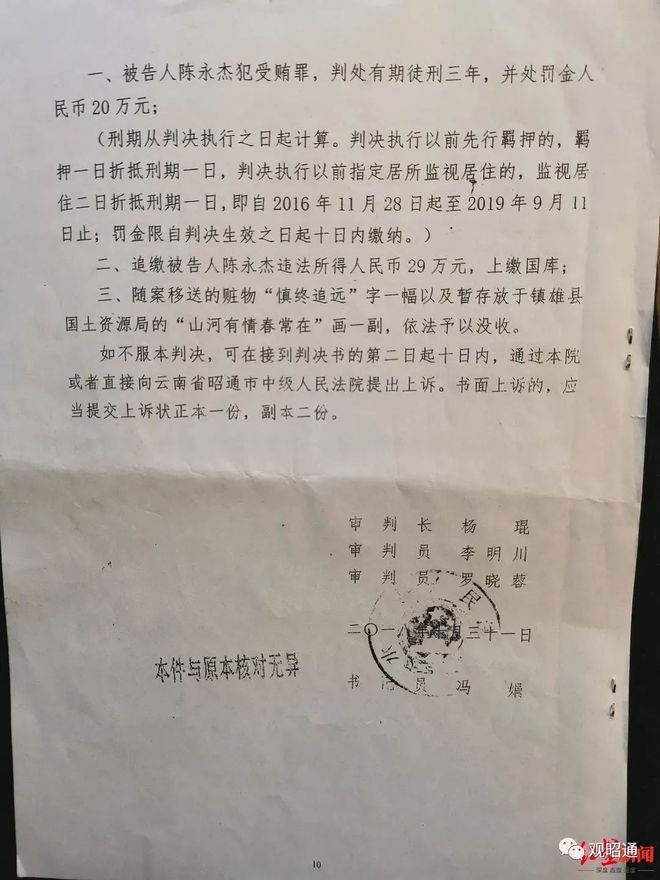 一、被告人陈永杰犯受贿罪，判处有期徒刑三年，并处罚金人
民币20万元；
(刑期从判决执行之日起计算。判决执行以前先行羁押的，羁
押一日折抵刑期一日，判决执行以前指定居所监视居住的，监视居
住二日折抵刑期一日,即自2016年11月28日起至2019年9月11
日止；罚金限自判决生效之日起十日内缴纳。)
二、追缴被告人陈永杰违法所得人民币29万元，上缴国库；
三、随案移送的赃物“慎终追远”字一幅以及暂存放于镇雄县
国土资源局的“山河有情春常在”画一副，依法予以没收。
如不服本判决，可在接到判决书的第二日起十日内，通过本院
或者直接向云南省昭通市中级人民法院提出上诉。书面上诉的，应
当提交上诉状正本一份，副本二份。
审判长 杨琨
审判员 李明川
审判员 罗晓蓉
民
水
二〇一八年 月三十一日
本件与原本核对无异
书记员 冯娟
10
观昭通
红星新闻